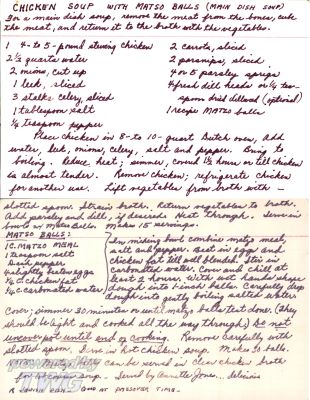 CHICKEN SOUP WITH MATSO BALLS (MAIN DISH SOUP)
For a main dish soup, remove the meat from the bones, cube
the meat, and return it to the broth with the vegetables.
1 4- to 5-pound stewing chicken
2 carrots, sliced
2 1/2 quarts water
2 parsnips, sliced
2 onions, cut up
4 or 5 parsley sprigs
1 leek, sliced
4 fresh dill heads or 1/4 tea-
3 stalks celery, sliced
spoon dried dillweed (optional)
1 tablespoon salt
1 recipe Matzo balls
1/4 teaspoon pepper
Place chicken in 8- to 10-quart Dutch oven, add
water, leek, onions, celery, salt and pepper. Bring to
boiling. Reduce heat; simmer, covered 1 1/2 hours or till chicken
is almost tender. Remove chicken; refrigerate chicken
for another use. Lift vegetables from broth with -
slotted spoon. Strain broth. Return vegetables to broth.
Add parsley and dill, if desired. Heat through. Serve in
bowls w/ Matzo Balls. Makes 15 servings.
MATSO BALLS:
1 C. MATZO MEAL
1 Teaspoon salt
Dash pepper
4 slightly beaten eggs
1/4 C. chicken fat
1/4 C. carbonated water
In mixing bowl combine matzo meal,
salt and pepper. Beat in eggs and
chicken fat till well blended. Stir in
carbonated water. Cover and chill at
least 2 hours. With wet hands shape
dough into 1-inch balls. Carefully drop
dough into gently boiling salted water
Cover; simmer 30 minutes or until matzo balls test done. (they
should be light and cooked all the way through.) Do not
uncover pot until end of cooking. Remove carefully with
slotted spoon. Serve in hot chicken soup. Makes 30 balls.
can be served in clear chicken broth
soup. Served by Annette Jones. delicious
GOOD AT PASSOVER TIME.
TWG